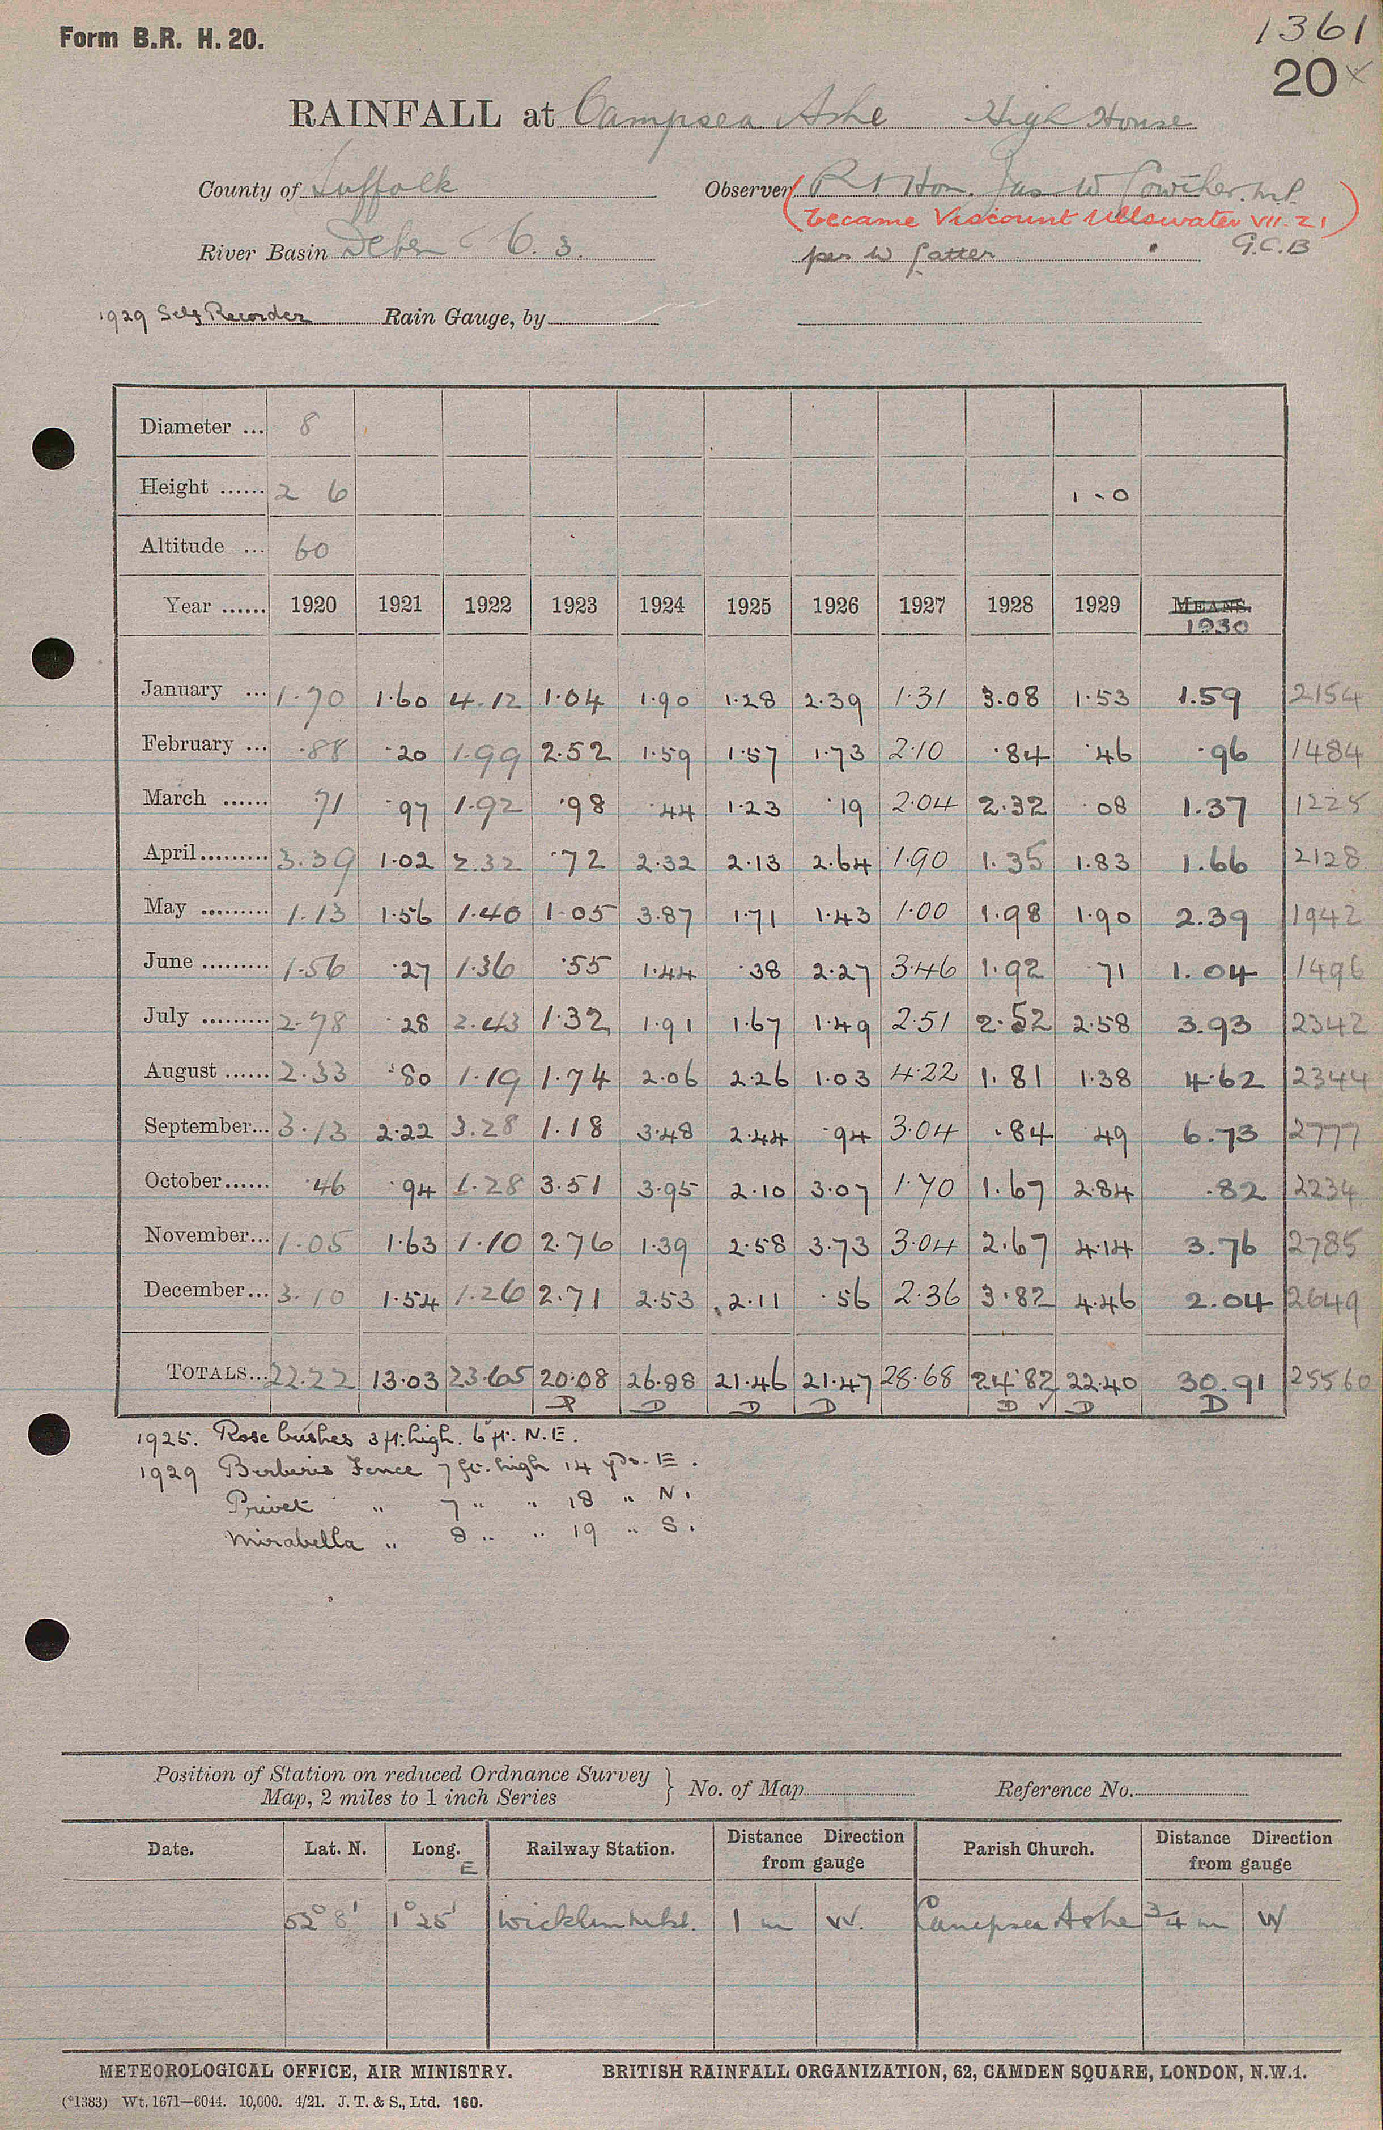 Form B.R. H. 20.
1361
20 ×
RAINFALL at Campsea Ashe High House
County of Suffolk Observer Rt Hon. Jas W Lowther. M.P.
(became Viscount Ullswater VII. 21)
River Basin Deben 6. 3. per W Latter G.C.B
1929 Self Recorder Rain Gauge, by
Diameter ... 8
Height ...... 2 6 1 - 0
Altitude ... 60
Year ...... 1920 1921 1922 1923 1924 1925 1926 1927 1928 1929 MEANS.
1930
January ... 1.70 1.60 4.12 1.04 1.90 1.28 2.39 1.31 3.08 1.53 1.59 2154
February ... .88 .20 1.99 2.52 1.59 1.57 1.73 2.10 .84 .46 .96 1484
March ...... .71 .97 1.92 .98 .44 1.23 .19 2.04 2.32 .08 1.37 1225
April ......... 3.39 1.02 2.32 .72 2.32 2.13 2.64 1.90 1.35 1.83 1.66 2128
May ......... 1.13 1.56 1.40 1.05 3.87 1.71 1.43 1.00 1.98 1.90 2.39 1942
June ......... 1.56 .27 1.36 .55 1.44 .38 2.27 3.46 1.92 .71 1.04 1496
July ......... 2.78 .28 2.43 1.32 1.91 1.67 1.49 2.51 2.52 2.58 3.93 2342
August ...... 2.33 .80 1.19 1.74 2.06 2.26 1.03 4.22 1.81 1.38 4.62 2344
September... 3.13 2.22 3.28 1.18 3.48 2.44 .94 3.04 .84 .49 6.73 2777
October...... .46 .94 1.28 3.51 3.95 2.10 3.07 1.70 1.67 2.84 .82 2234
November... 1.05 1.63 1.10 2.76 1.39 2.58 3.73 3.04 2.67 4.14 3.76 2785
December... 3.10 1.54 1.26 2.71 2.53 2.11 .56 2.36 3.82 4.46 2.04 2649
TOTALS... 22.22 13.03 23.65 20.08 26.88 21.46 21.47 28.68 24.82 22.40 30.91 25560
D D D D D ✓ D D
1925. Rose bushes 3 ft. high. 6 ft. N.E.
1929 Berberis Fence 7 ft. high 14 yds. E.
Privet " 7 " " 18 " N.
Mirabella " 8 " " 19 " S.
Position of Station on reduced Ordnance Survey
Map, 2 miles to 1 inch Series } No. of Map Reference No.
Date. Lat. N. Long. E Railway Station. Distance Direction from gauge Parish Church. Distance Direction from gauge
52° 8' 1° 25' Wickham Mkt. 1 m W. Campsea Ashe 3/4 m W
METEOROLOGICAL OFFICE, AIR MINISTRY. BRITISH RAINFALL ORGANIZATION, 62, CAMDEN SQUARE, LONDON, N.W.1.
(*1383) Wt. 1671—6044. 10,000. 4/21. J. T. & S., Ltd. 160.